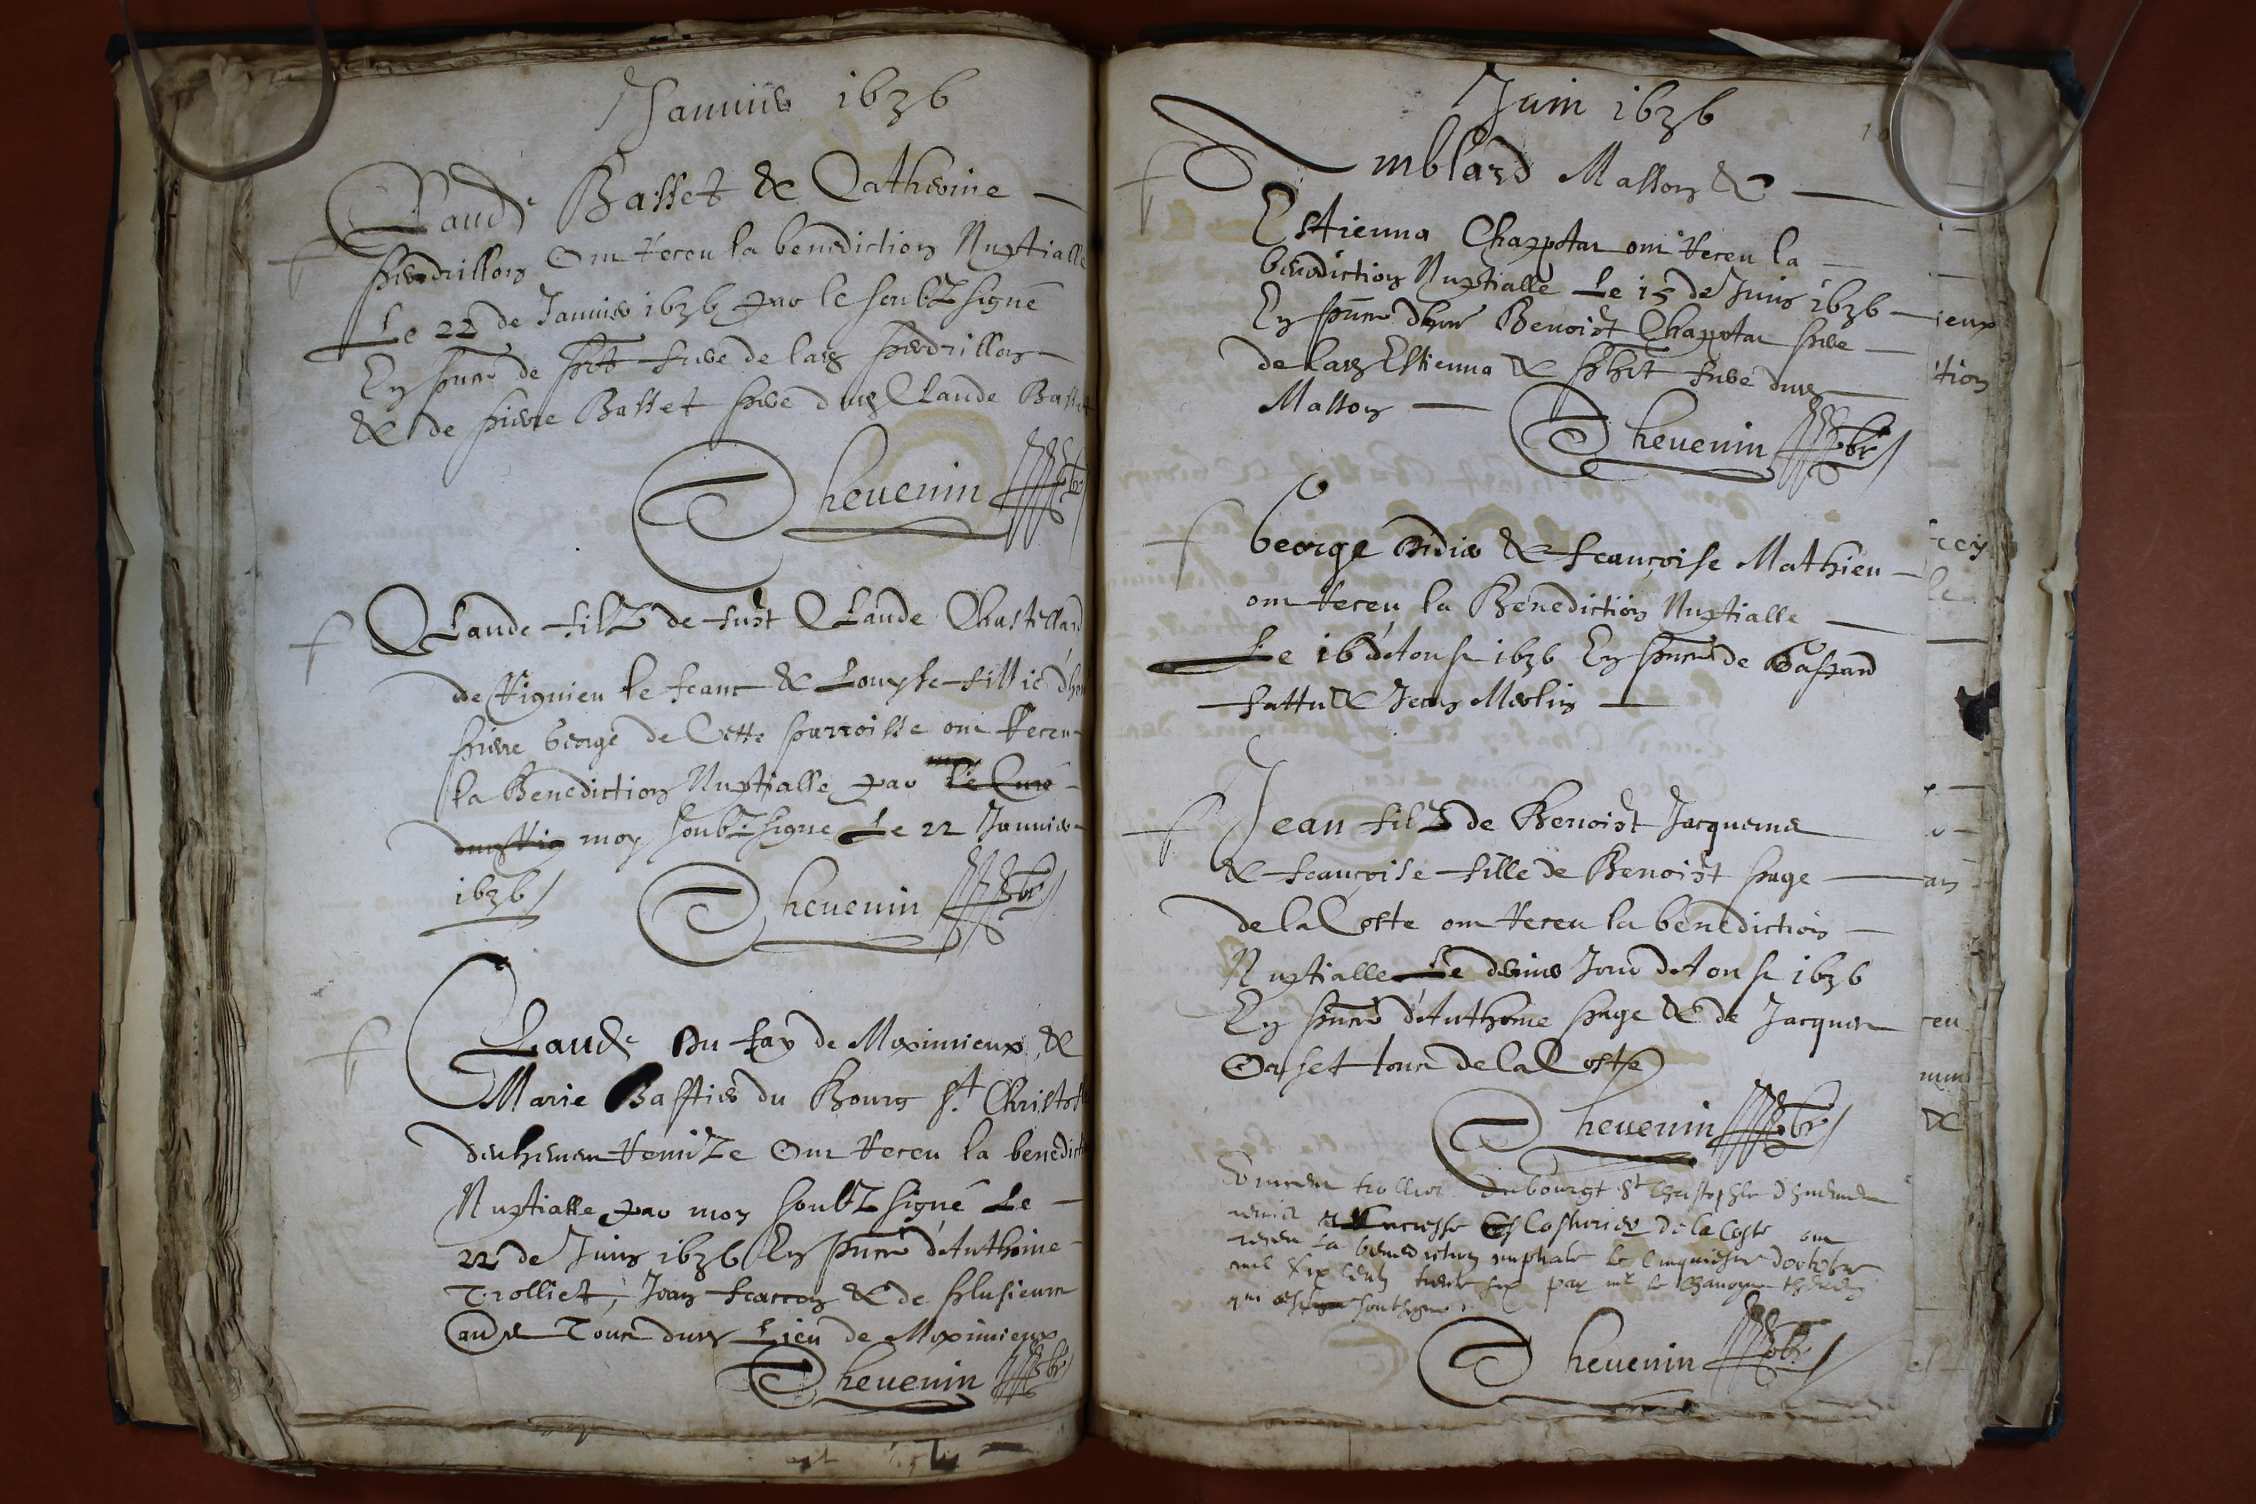 Januier 1636
Claude Basset & Catherine
Perdrillon Ont Receu la benediction Nuptialle
Le 22 de Januier 1636 par le soubz signé
En pñce de frere de lad Perdrillon
& de Pierre Basset pere dud Claude Basset
Theuenin pbr
Claude filz de fust Claude Chastellard
de Rignieu le franc & Louyse fillie d'hon
Pierre George de Cette parroisse ont Receu
la Benediction Nuptialle par le Curé
dud Rig moy soubz signe Le 22 Januier
1636
Theuenin pbr
Claude Du fay de Moximieux &
Marie Bastier du Bourg St Christofle
Remize Ont Receu la benedicti
Nuptialle par moy soubz signé Le
22 de Juin 1636 En pñce d'Anthoine
Trolliet, Jean & de plusieurs
autres Tous dud Lieu de Moximieux
Theuenin pbr
Juin 1636
10
Emblard Masson &
Estienna Chappotat ont Receu la
benediction Nuptialle Le 15 de Juin 1636
En pñce dhon Benoist Chappotat pere
de lad Estienna & frere dud
Masson
Theuenin pbr
George Didier & françoise Mathieu
ont Receu la Benediction Nuptialle
Le 16 d'Aoust 1636 En pñce de Gaspard
fattu & Jean Merlin
Jean filz de Benoist Jacquemet
& françoise fille de Benoist page
de la Coste ont Receu la benediction
Nuptialle Le dernier Jour d'Aoust 1636
En pñce d'Anthoine page & de Jacques
Orset tous de la Coste
Theuenin pbr
Vincent trolliet du bourgt St Christophle
& Cousturier de la Coste ont
receu la benediction nuptiale le cinquiesme d'octobre
mil six cents trente six par mr le Chanoyne theuenin
qui soubsigné
Theuenin pbr